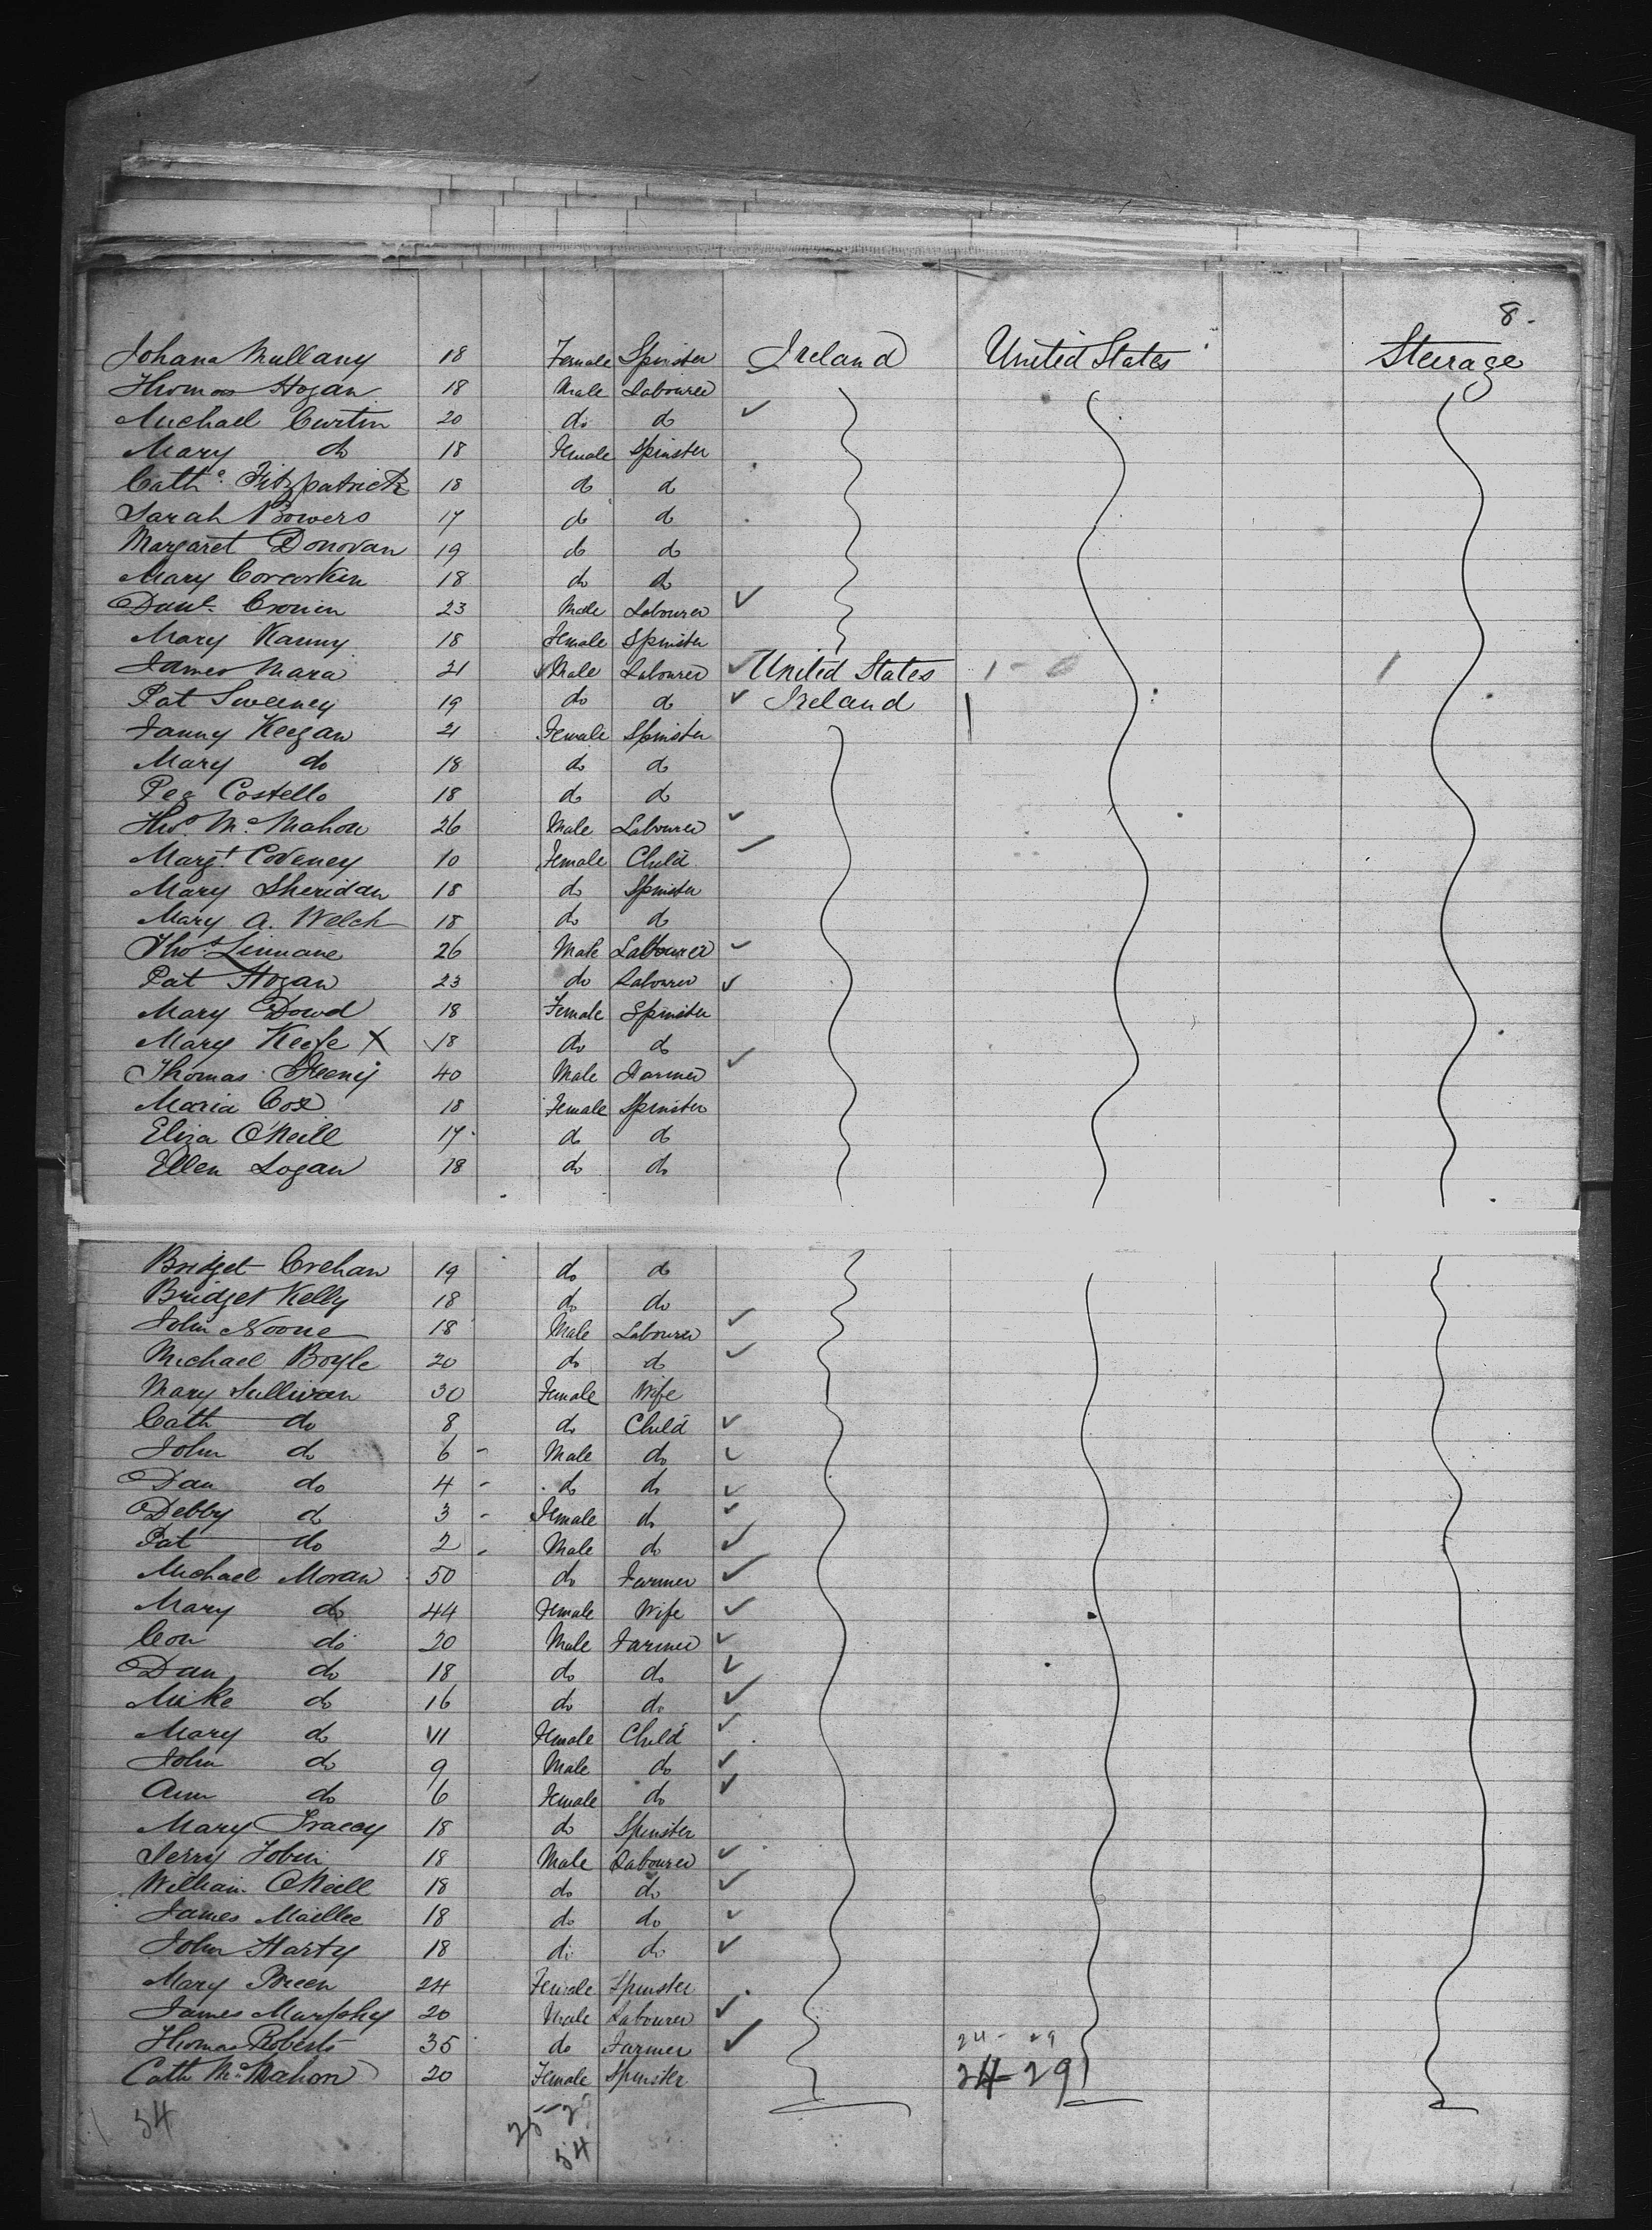 8.
Johana Mullany 18 Female Spinster Ireland United States Steerage
Thomas Hogan 18 Male Labourer
Michael Curtin 20 do do
Mary do 18 Female Spinster
Cath.e Fitzpatrick 18 do do
Sarah Bowers 17 do do
Margaret Donovan 19 do do
Mary Corcorken 18 do do
Danl. Cronin 23 Male Labourer
Mary Kanny 18 Female Spinster
James Mara 21 Male Labourer United States 1 - 0 1
Pat Sweeney 19 do do Ireland
Fanny Keegan 21 Female Spinster
Mary do 18 do do
Peg Costello 18 do do
Thos. McMahon 26 Male Labourer
Margt. Coveney 10 Female Child
Mary Sheridan 18 do Spinster
Mary A. Welch 18 do do
Thos. Linnane 26 Male Labourer
Pat Hogan 23 do Labourer
Mary Dowd 18 Female Spinster
Mary Keefe X 18 do do
Thomas Feeny 40 Male Farmer
Maria Cox 18 Female Spinster
Eliza O'Neill 17 do do
Ellen Logan 18 do do
Bridget Crehan 19 do do
Bridget Kelly 18 do do
John Noone 18 Male Labourer
Michael Boyle 20 do do
Mary Sullivan 30 Female Wife
Cath do 8 do Child
John do 6 - Male do
Dan do 4 - do do
Debby do 3 - Female do
Pat do 2 - Male do
Michael Moran 50 do Farmer
Mary do 44 Female Wife
Con do 20 Male Farmer
Dan do 18 do do
Mike do 16 do do
Mary do 11 Female Child
John do 9 Male do
Ann do 6 Female do
Mary Tracey 18 do Spinster
Jerry Tobin 18 Male Labourer
William O'Neill 18 do do
James Maillee 18 do do
John Harty 18 do do
Mary Breen 24 Female Spinster
James Murphy 20 Male Labourer
Thomas Roberts 35 do Farmer 24 - 29
Cath McMahon 20 Female Spinster 24-29
54 25-29
54